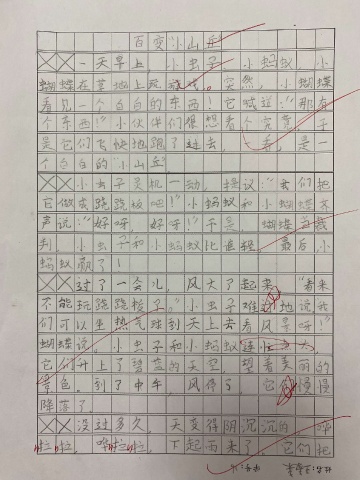 百变"小山丘"
一天早上，小虫子，小蚂蚁，小
蝴蝶在草地上玩游戏。突然，小蝴蝶
看见一个白白的东西！它喊道："那有
个东西！"小伙伴们很想看个究竟，于
是它们飞快地跑了过去，一看，是一
个白白的"小山丘"
小虫子灵机一动，提议："我们把
它做成跷跷板吧！"小蚂蚁和小蝴蝶齐
声说："好呀！好呀！"于是，蝴蝶当裁
判，小虫子和小蚂蚁比谁轻。最后，小
蚂蚁赢了！
过了一会儿，风大了起来，"看来
不能玩跷跷板了。"小虫子难过地说我
们可以坐热气球到天上去看风景呀！"
蝴蝶说。小虫子和小蚂蚁
它们升上了碧蓝的天空，望着美丽的
景色，到了中午，风停了，它们慢慢
降落了，
没过多久，天变得阴沉沉的，哗
啦啦，哗啦啦，下起雨来了，它们把